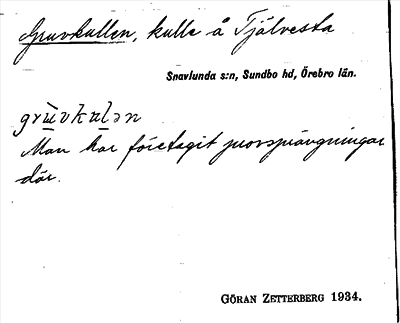 Gruvkullen, kulle å Tjälvesta
Snavlunda s:n, Sundbo hd, Örebro län.
grùvkulən
Man har företagit provsprängningar
där.
GÖRAN ZETTERBERG 1934.